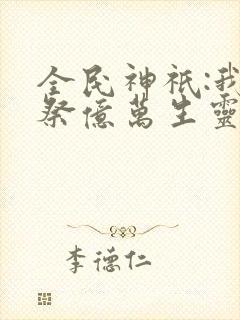 全民神祇:我
祭億萬生靈
李德仁